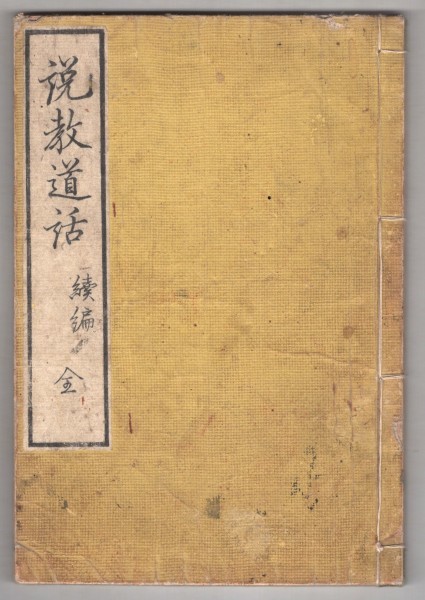 説教道話
續編
全